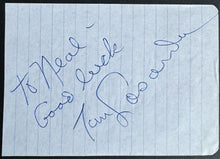 To Neal -
Good luck
Tom Lasorda